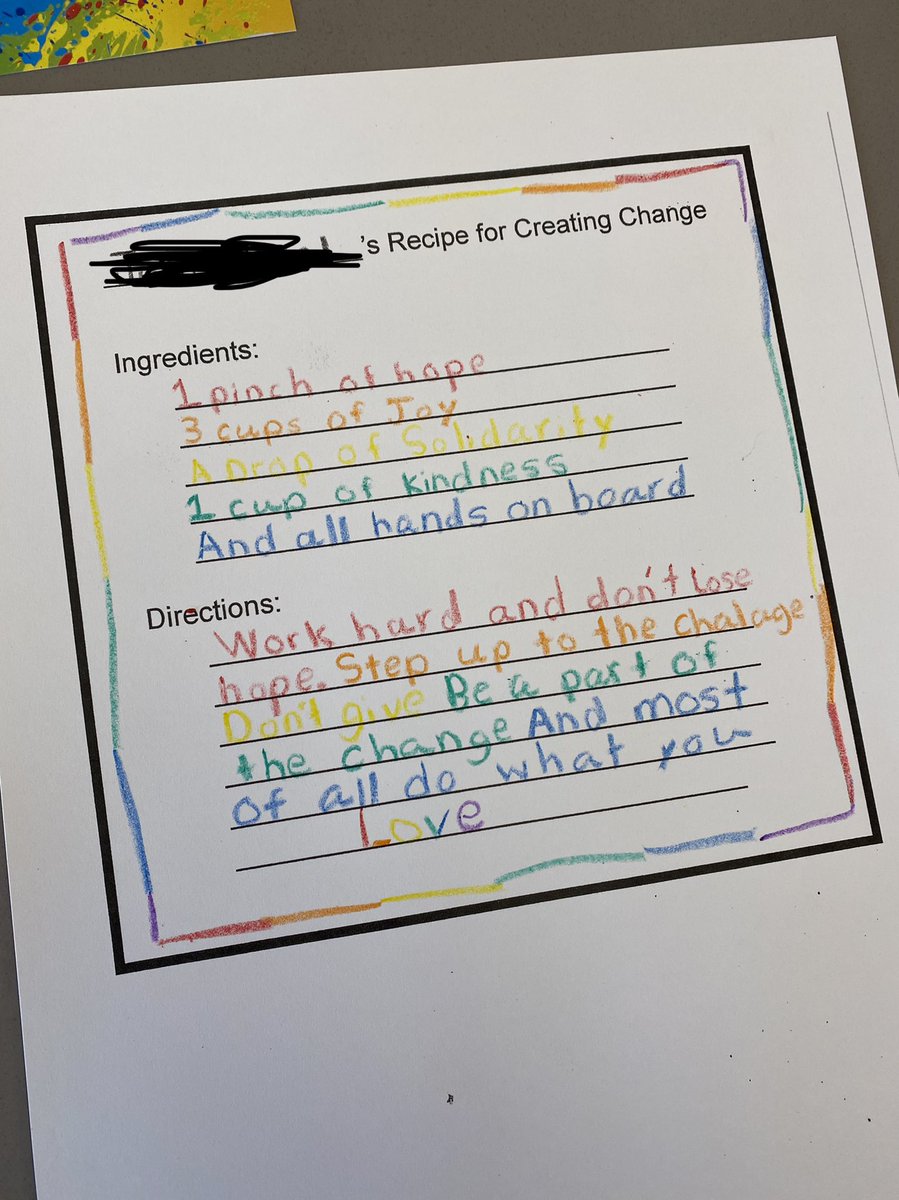 's Recipe for Creating Change
Ingredients:
1 pinch of hope
3 cups of Joy
A Drop of Solidarity
1 cup of kindness
And all hands on board
Directions:
Work hard and don't Lose
hope. Step up to the chalage
Don't give Be a part of
the change And most
of all do what you
Love